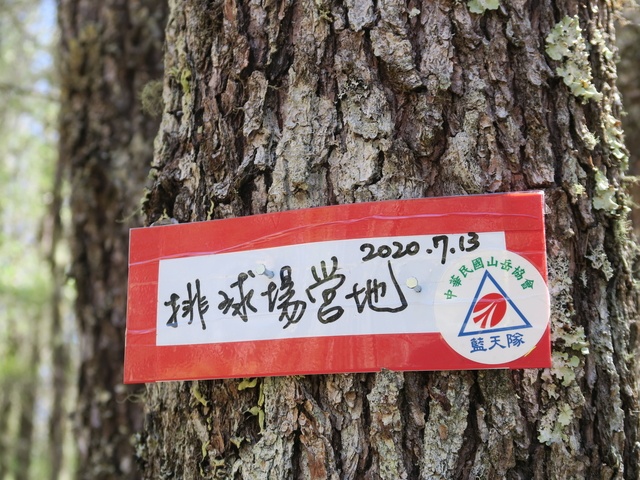 2020.7.13
排球場營地
中華民國山岳協會
藍天隊